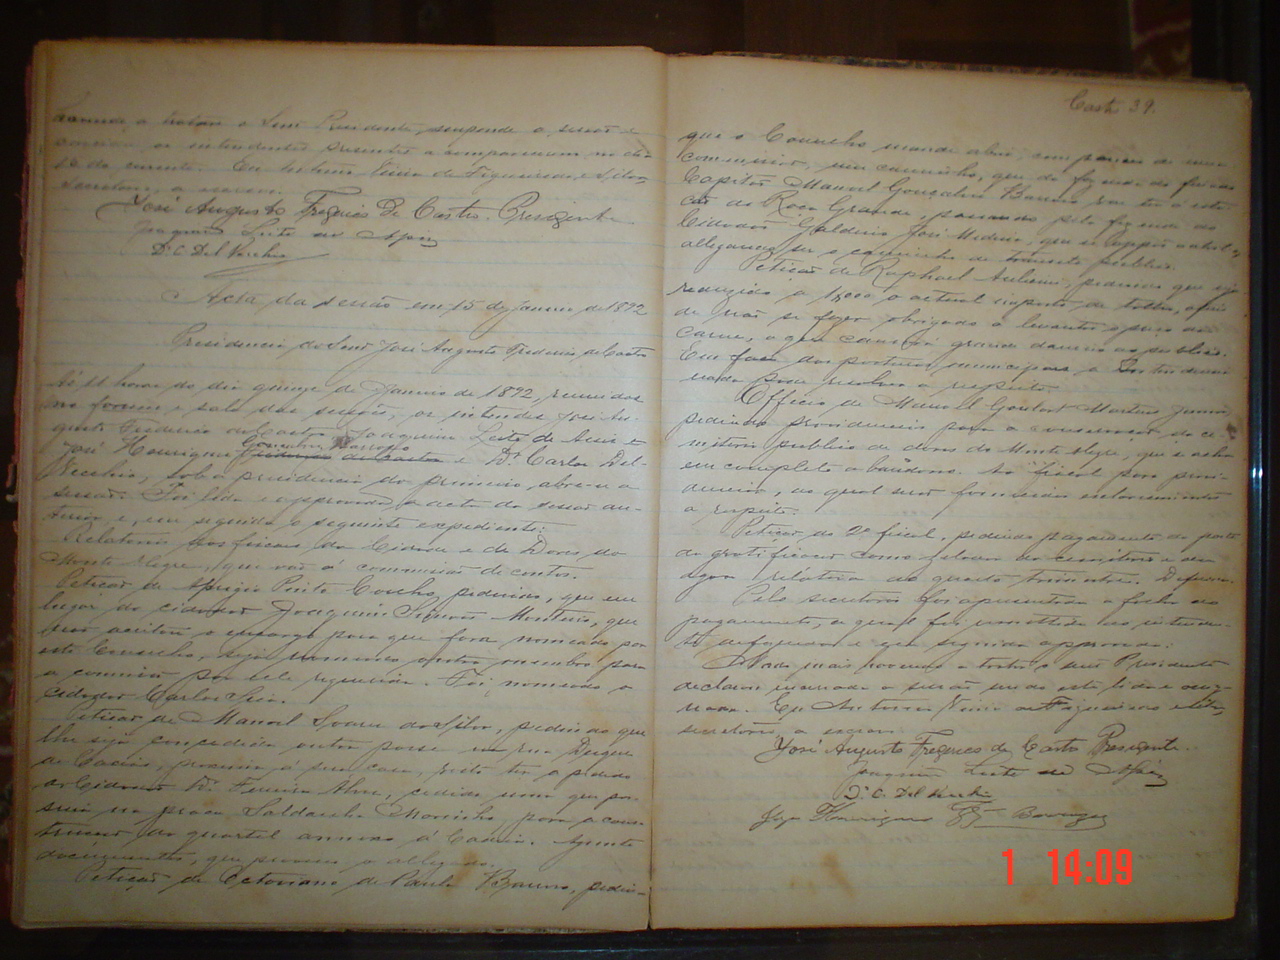 havendo a tratar o Senr Presidente, suspende a sessão e
convida os intendentes presentes a comparecerem no dia
15 do corrente. Eu Antonio Vieira de Figueiredo,
Secretario, a escrevi.
José Augusto Frederico De Castro. Presidente
Joaquim Leite de Assis
Dr. C. Del Vecchio
Acta da sessão em 15 de Janeiro de 1892
Presidencia do Senr José Augusto Frederico de Castro
Ás 11 horas do dia quinze de Janeiro de 1892, reunidos
no forum e sala das sessões, os intendes José Au-
gusto Frederico de Castro, Joaquim Leite de Assis e
José Henrique e Dr. Carlos Del-
Vecchio, sob a presidencia do primeiro, abre-se a
sessão. Foi lida e approvada a acta da sessão an-
terior e, em seguida o seguinte expediente:
Relatorio dos fiscaes da Cidade e de Dores do
Monte Alegre, que vão á commissão de contas.
Petição de Aprigio Pinto Coelho pedindo, que em
lugar do cidadão Joaquim Simões Monteiro, que
não aceitou o encargo para que fora nomeado por
este Conselho, seja nomeado outro membro para
a commissão por elle requerida. Foi nomeado o
cidadão Carlos
Petição de Manoel Soares da Silva, pedindo que
lhe seja concedida outra posse na rua Duque
de Caxias, proxima á sua casa, visto ter o
Cidadão Dr. Ferreira Alves, cedido uma que pos-
sue na praça Saldanha Marinho, para a cons-
trucção do quartel annexo á Cadeia. Ajunta
documentos, que provam o allegado.
Petição de Victoriano de Paula Barros, pedin-
Castr 39.
que o Conselho mande abrir, com parecer de uma
commissão, um caminho, que da fazenda do finado
Capitão Manoel Gonçalves Barros vem ter á esta-
ção da Roça Grande, passando pela fazenda do
Cidadão Galdino José Medina, que se oppôs
allegando ser o caminho de transito publico.
Petição de Raphael pedindo que seja
reduzido a 1,000 o actual imposto de talho, afim
de não se fazer obrigado a levantar o preço da
carne, o que causará grande damno ao publico.
Em face das posturas municipaes a Intendencia
nada pode resolver a respeito.
Officio de Manoel Goulart Martins Junior,
pedindo providencias para a conservação do ce-
miterio publico de Dores do Monte Alegre, que se acha
em completo abandono. Ao fiscal para provi-
denciar, ao qual serão fornecidos esclarecimentos
a respeito.
Petição do 2º fiscal, pedindo pagamento da parte
da gratificação como zelador do cemiterio e da
agoa relativa ao quarto trimestre. Deferida.
Pelo secretario foi apresentada a folha de
pagamento, a qual foi
e em seguida approvada.
Nada mais havendo a tratar o senr Presidente
declarou encerrada a sessão sendo esta lida e assig-
nada. Eu Antonio Vieira de Figueiredo
secretario, a escrevi.
José Augusto Frederico de Castro Presidente.
Joaquim Leite de Assis
Dr. C. Del Vecchio
José Henrique
1 14:09